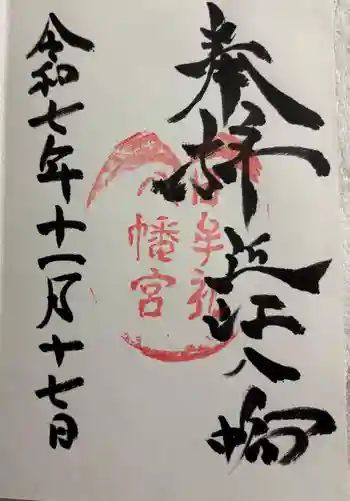 奉拝 近江八幡
日牟禮八幡宮
令和七年十一月十七日